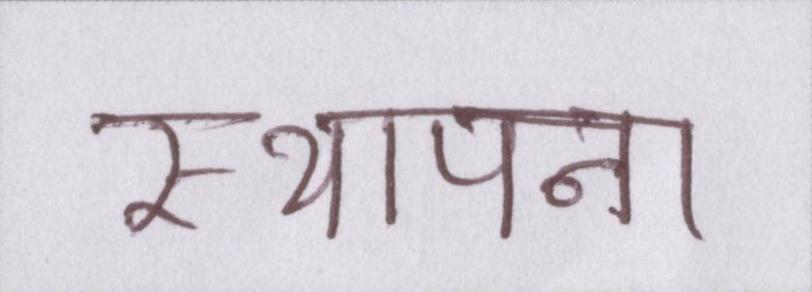 स्थापना